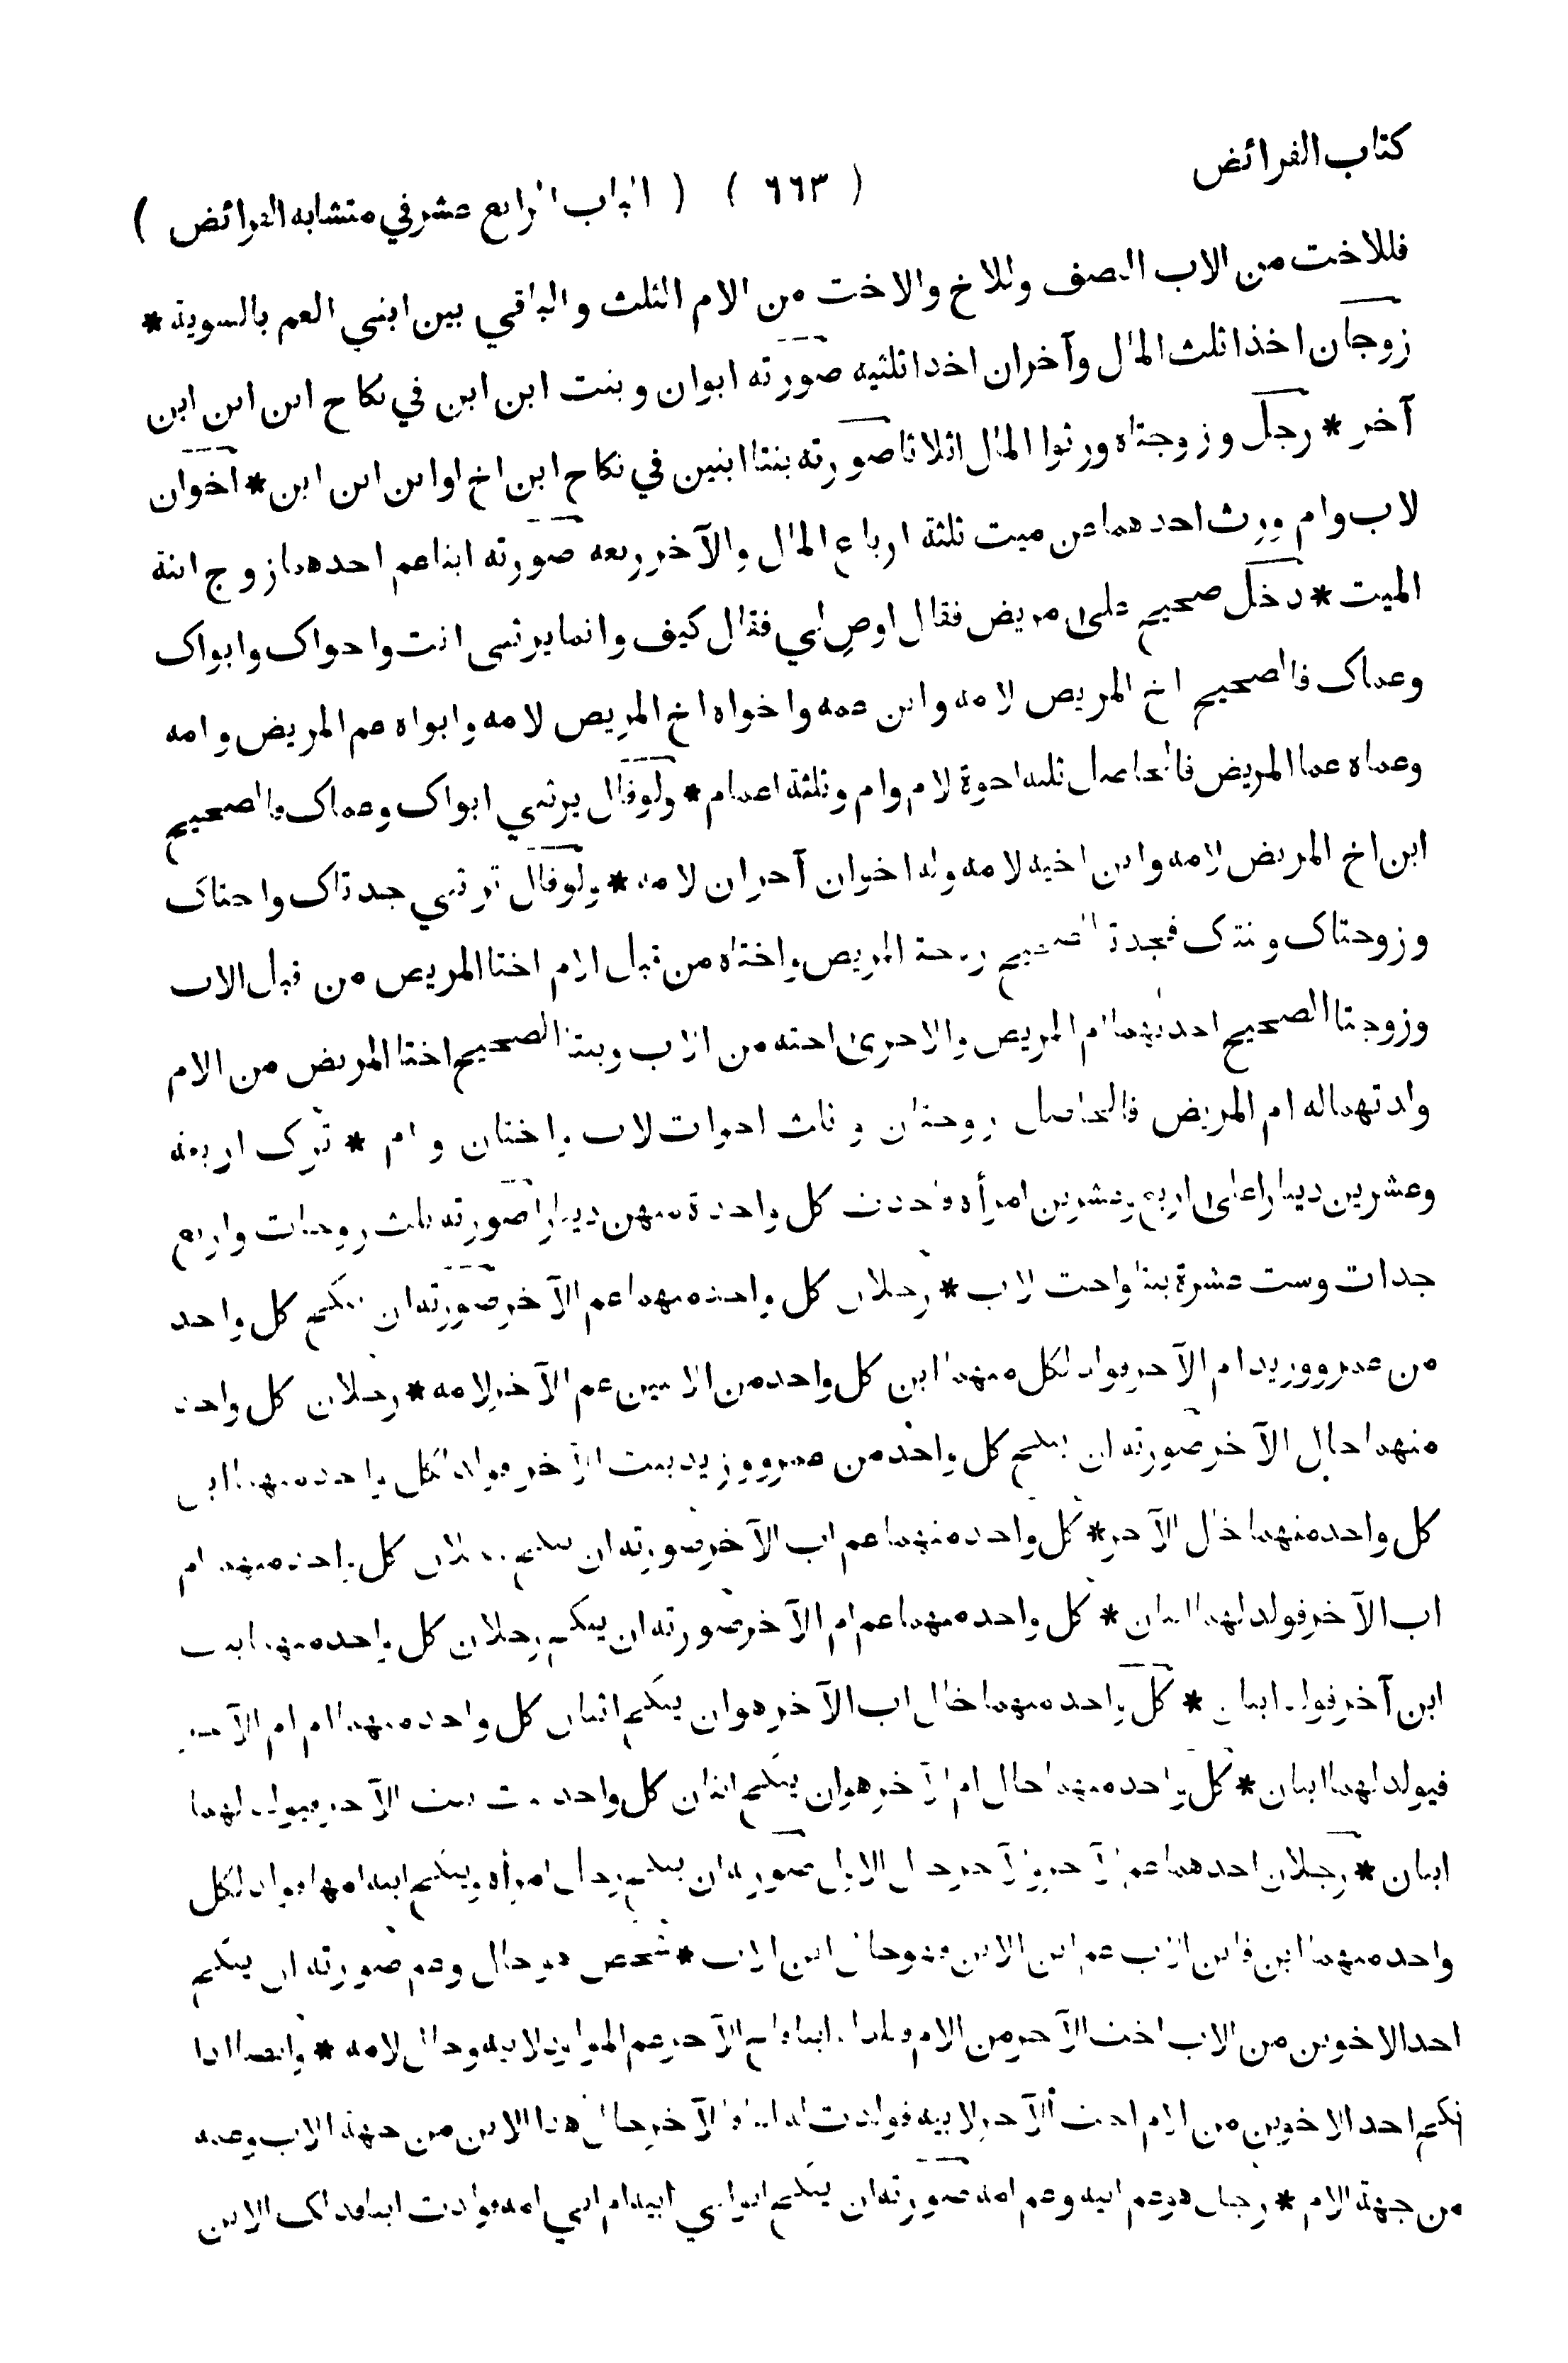 كتاب الفرائض
( ٦٦٣ ) ( الباب الرابع عشر في متشابه الفرائض )
فللاخت من الاب النصف وللاخ والاخت من الام الثلث والباقي بين ابني العم بالسوية *
زوجان اخذا ثلث المال وآخران اخذا ثلثيه صورته ابوان وبنت ابن ابن في نكاح ابن ابن ابن
آخر * رجل وزوجتاه ورثوا المال اثلاثا صورته بنتا ابنين في نكاح ابن اخ او ابن ابن ابن * اخوان
لاب وام ورث احدهما من ميت ثلثة ارباع المال والآخر ربعه صورته ابنا عم احدهما زوج ابنة
الميت * دخل صحيح على مريض فقال اوص لي فقال كيف وانما يرثني انت واخواك وابواك
وعماك فالصحيح اخ المريض لامه وابن عمه واخواه اخ المريض لامه وابواه عم المريض وامه
وعماه عما المريض فالحاصل ثلثة اخوة لام وام وثلثة اعمام * ولو قال يرثني ابواك وعماك فالصحيح
ابن اخ المريض لامه وابن اخيه لامه وله اخوان آخران لامه * ولو قال ترثني جدتاك واختاك
وزوجتاك وبنتك فجدتا الصحيح زوجة المريض واختاه من قبل الام اختا المريض من قبل الاب
وزوجتا الصحيح احدٰىهما ام المريض والاخرى اخته من الاب وبنتا الصحيح اختا المريض من الام
ولدتهما له ام المريض فالحاصل زوجتان وثلث اخوات لاب واختان وام * ترك اربعة
وعشرين دينارا على اربع وعشرين امرأة فاخذت كل واحدة منهن دينارا صورته ثلث زوجات واربع
جدات وست عشرة بنتا واخت لاب * رجلان كل واحد منهما عم الآخر صورته ان ينكح كل واحد
من عمرو وزيد ام الآخر يولد لكل منهما ابن كل واحد من الابنين عم الآخر لامه * رجلان كل واحد
منهما خال الآخر صورته ان ينكح كل واحد من عمرو وزيد بنت الآخر فولد لكل واحد منهما ابن
كل واحد منهما خال الآخر * كل واحد منهما عم اب الآخر صورته ان ينكح رجلان كل واحد منهما ام
اب الآخر فولد لهما ابنان * كل واحد منهما عم ام الآخر صورته ان ينكح رجلان كل واحد منهما بنت
ابن آخر فولد ابنان * كل واحد منهما خال اب الآخر هو ان ينكح اثنان كل واحد منهما ام ام الآخر
فيولد لهما ابنان * كل واحد منهما خال ام الآخر هو ان ينكح اثنان كل واحد بنت بنت الآخر فيولد لهما
ابنان * رجلان احدهما عم الآخر والآخر خال الاول صورته ان ينكح رجل امرأة وينكح ابنه امها فولد لكل
واحد منهما ابن فابن الاب عم ابن الابن وهو خال ابن الاب * شخص هو خال وعم صورته ان ينكح
احد الاخوين من الاب اخت الآخر من الام فولد ابنا فالآخر عم المولود لابيه وخال لامه * وايضا اذا
نكح احد الاخوين من الام اخت الآخر لابيه فولدت له ابنا فالآخر خال هذا الابن من جهة الاب وعمه
من جهة الام * رجل هو عم ابيه وعم امه صورته ان ينكح ابو ابي ابيه ام ابي امه فولدت ابنا فذاك الابن